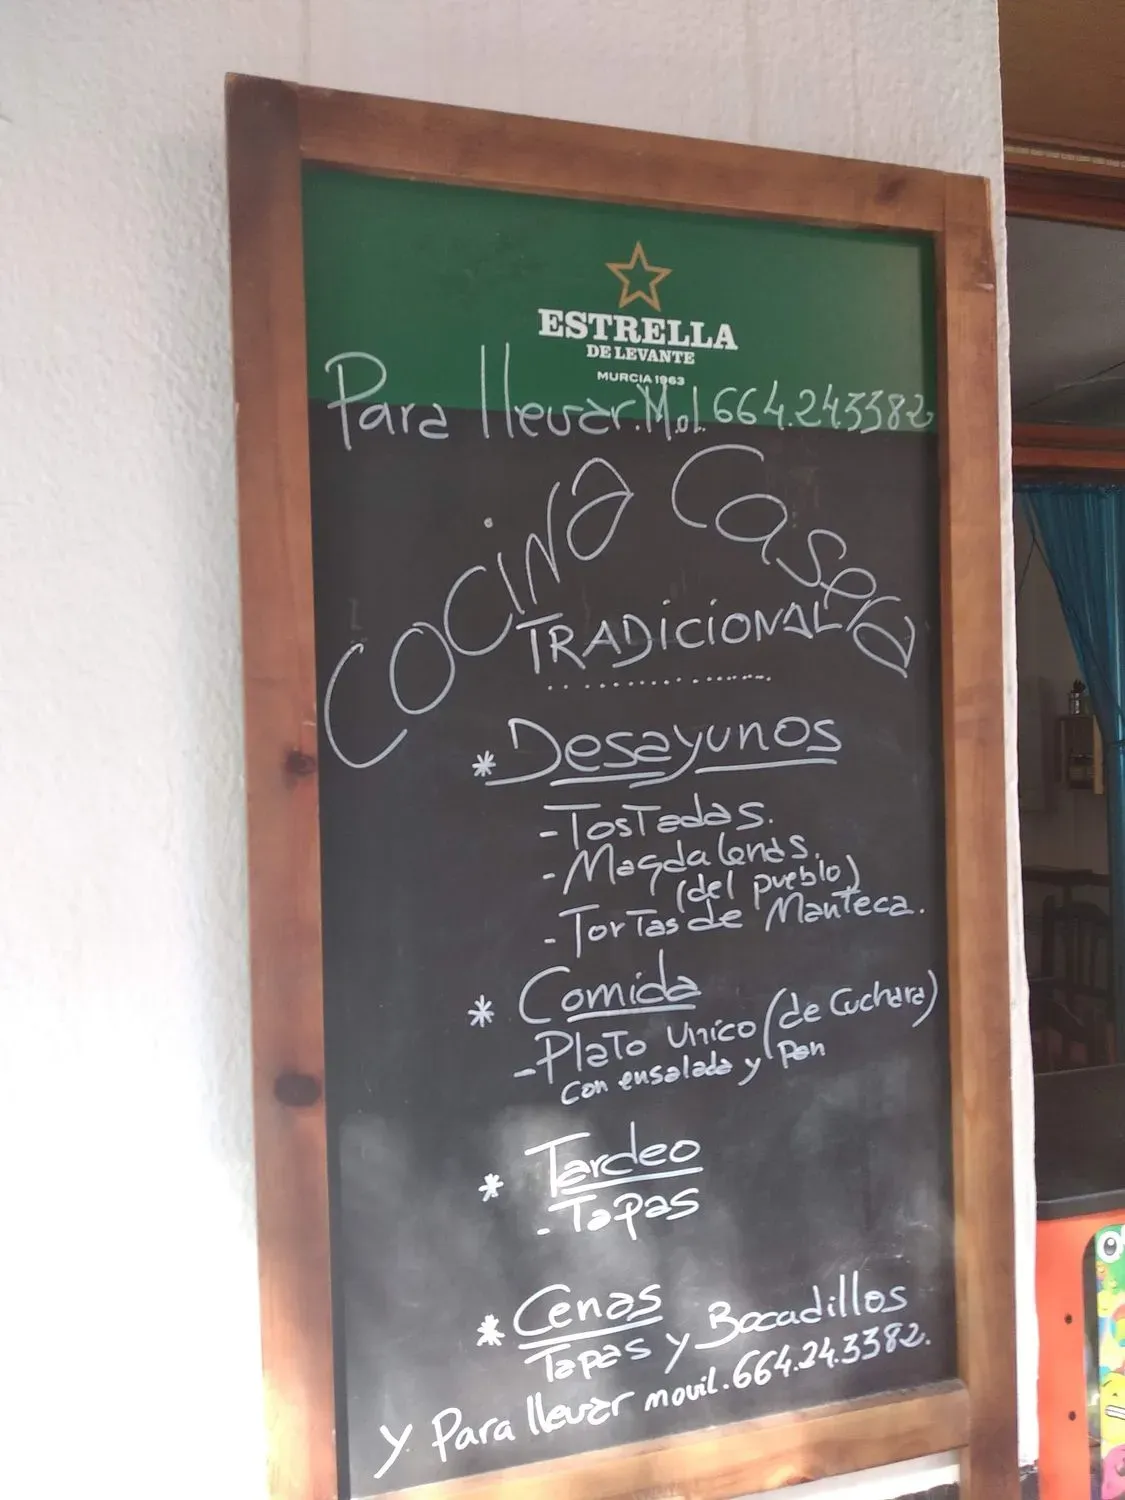 ESTRELLA
DE LEVANTE
MURCIA 1963
Para llevar. Mol. 664.243382
COCINA Casera
TRADICIONAL
* Desayunos
- Tostadas.
- Magdalenas.
(del pueblo)
- Tortas de Manteca.
* Comida
- Plato Unico (de Cuchara)
con ensalada y pan
* Tardeo
- Tapas
* Cenas
Tapas y Bocadillos
y Para llevar movil. 664.24.3382.